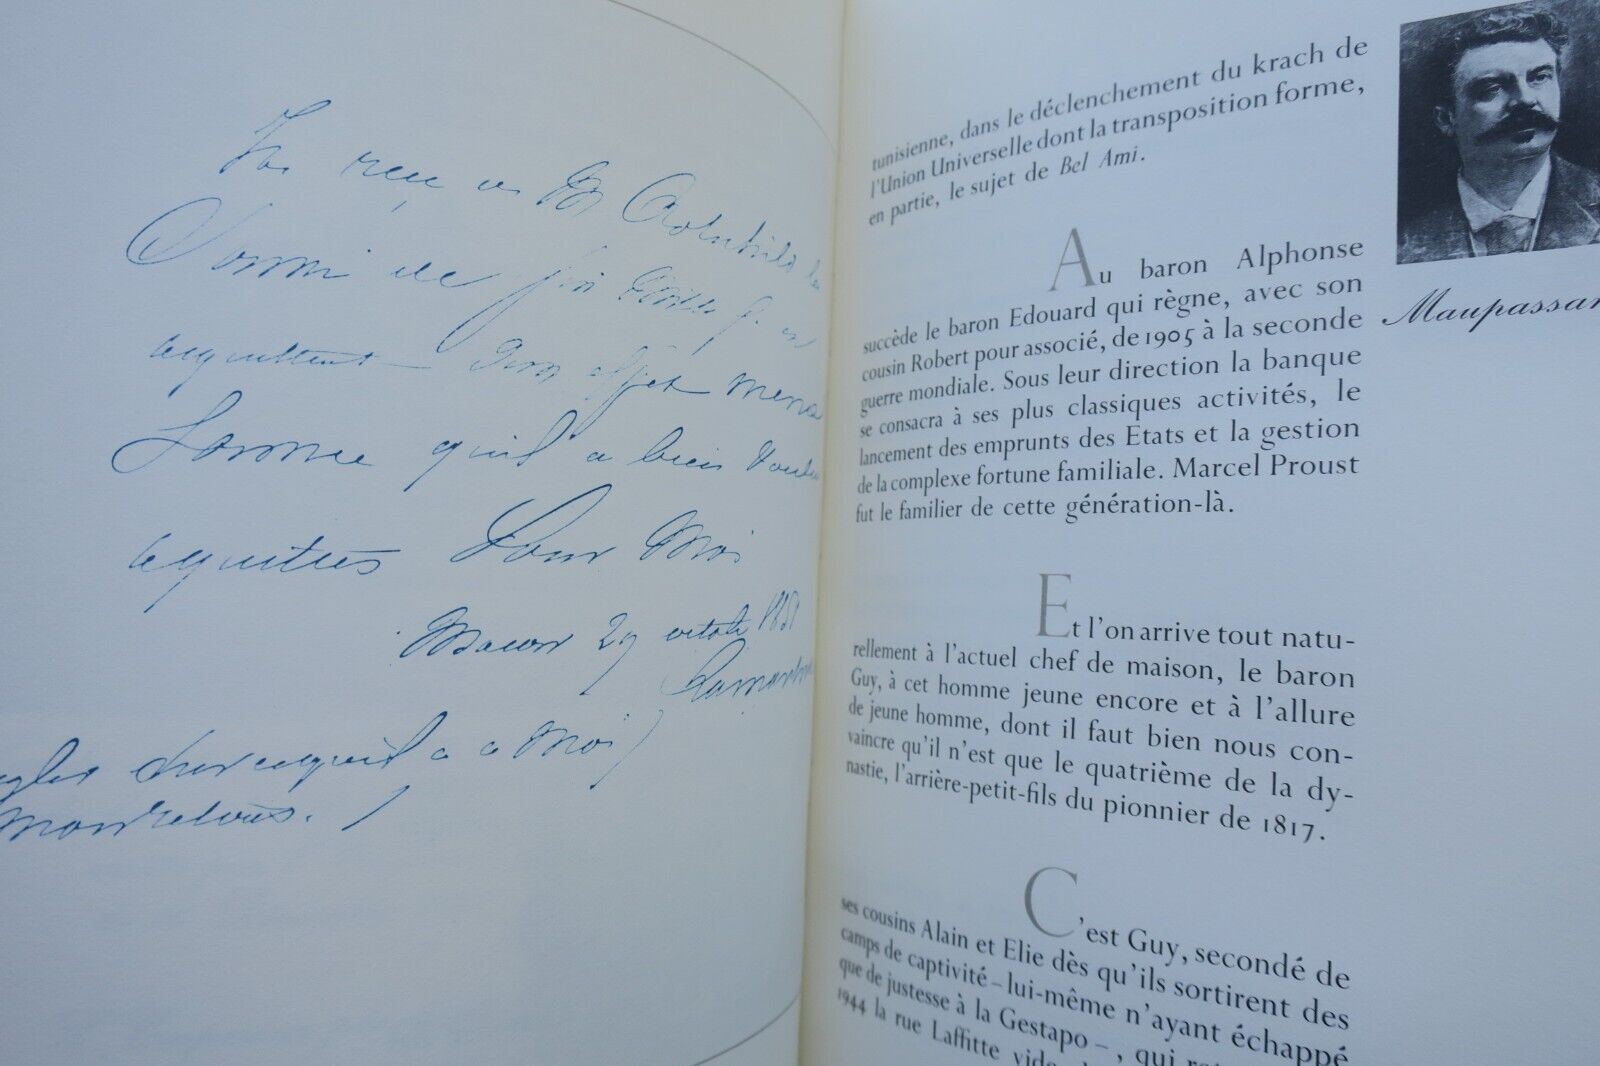 J'ai reçu de Mr Rothschild la
Somme de
acquittant un effet meme
Somme qu'il a bien voulu
acquitter Pour Moi
Macon 29 octobre 1851
Lamartine
a Moi
Montceau. /
tunisienne, dans le déclenchement du krach de
l'Union Universelle dont la transposition forme,
en partie, le sujet de Bel Ami.
Au baron Alphonse
succède le baron Edouard qui règne, avec son
cousin Robert pour associé, de 1905 à la seconde
guerre mondiale. Sous leur direction la banque
se consacra à ses plus classiques activités, le
lancement des emprunts des Etats et la gestion
de la complexe fortune familiale. Marcel Proust
fut le familier de cette génération-là.
Et l'on arrive tout natu-
rellement à l'actuel chef de maison, le baron
Guy, à cet homme jeune encore et à l'allure
de jeune homme, dont il faut bien nous con-
vaincre qu'il n'est que le quatrième de la dy-
nastie, l'arrière-petit-fils du pionnier de 1817.
C'est Guy, secondé de
ses cousins Alain et Elie dès qu'ils sortirent des
camps de captivité – lui-même n'ayant échappé
que de justesse à la Gestapo –, qui
1944 la rue Laffitte
Maupassan